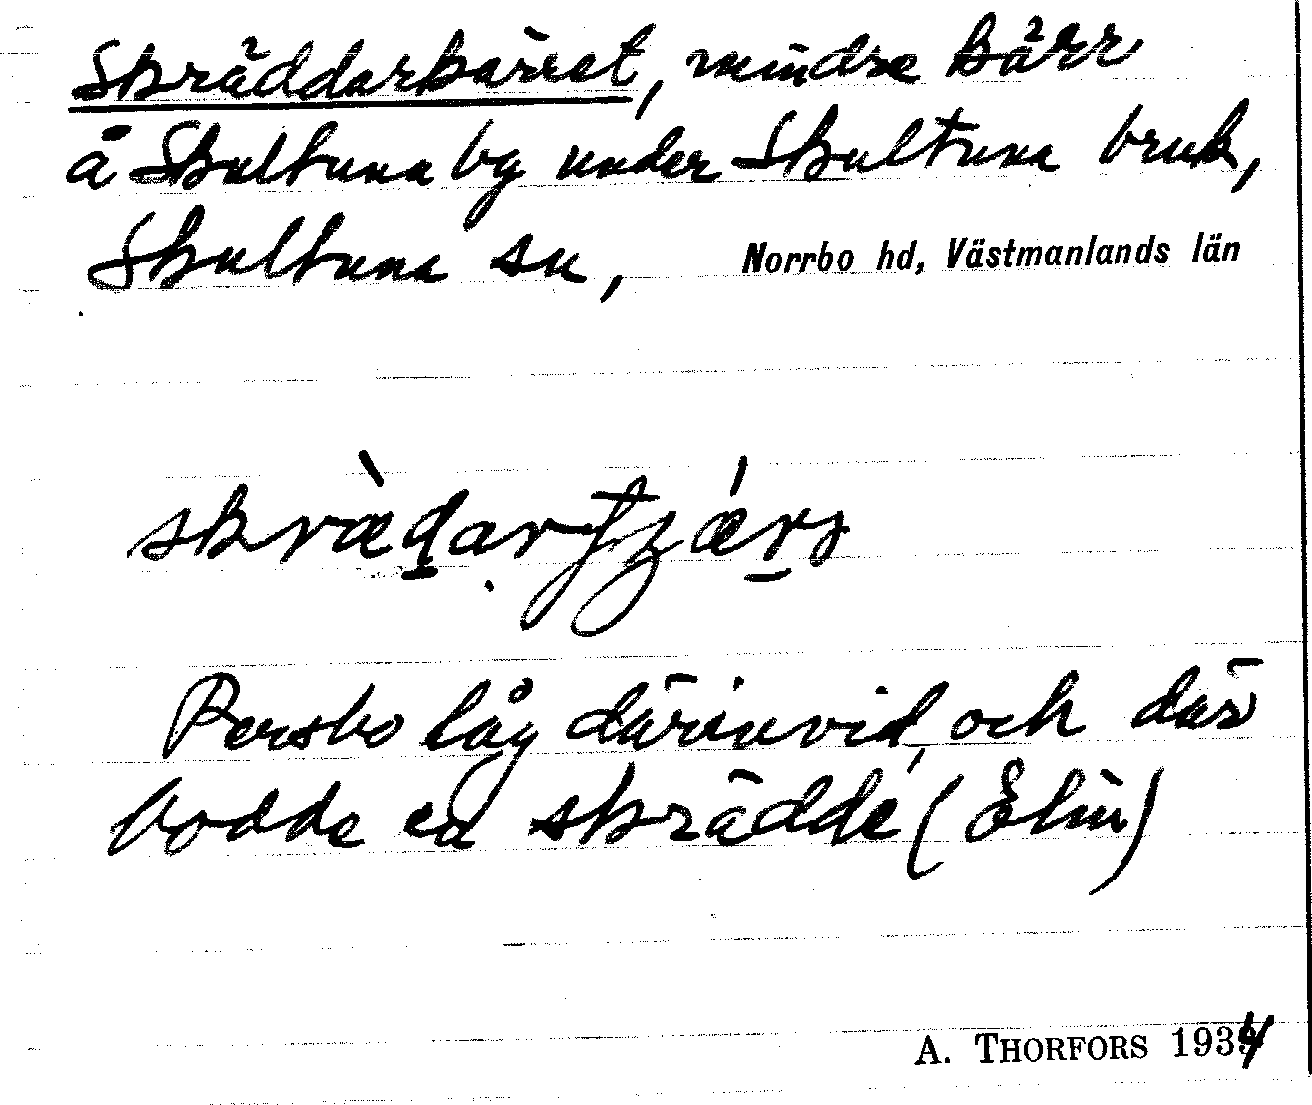 Skräddarkärret, mindre kärr
å Skultuna by under Skultuna bruk,
Skultuna sn, Norrbo hd, Västmanlands län
Persbo låg därinvid, och där
bodde en skräddé (Elin)
A. THORFORS 1934